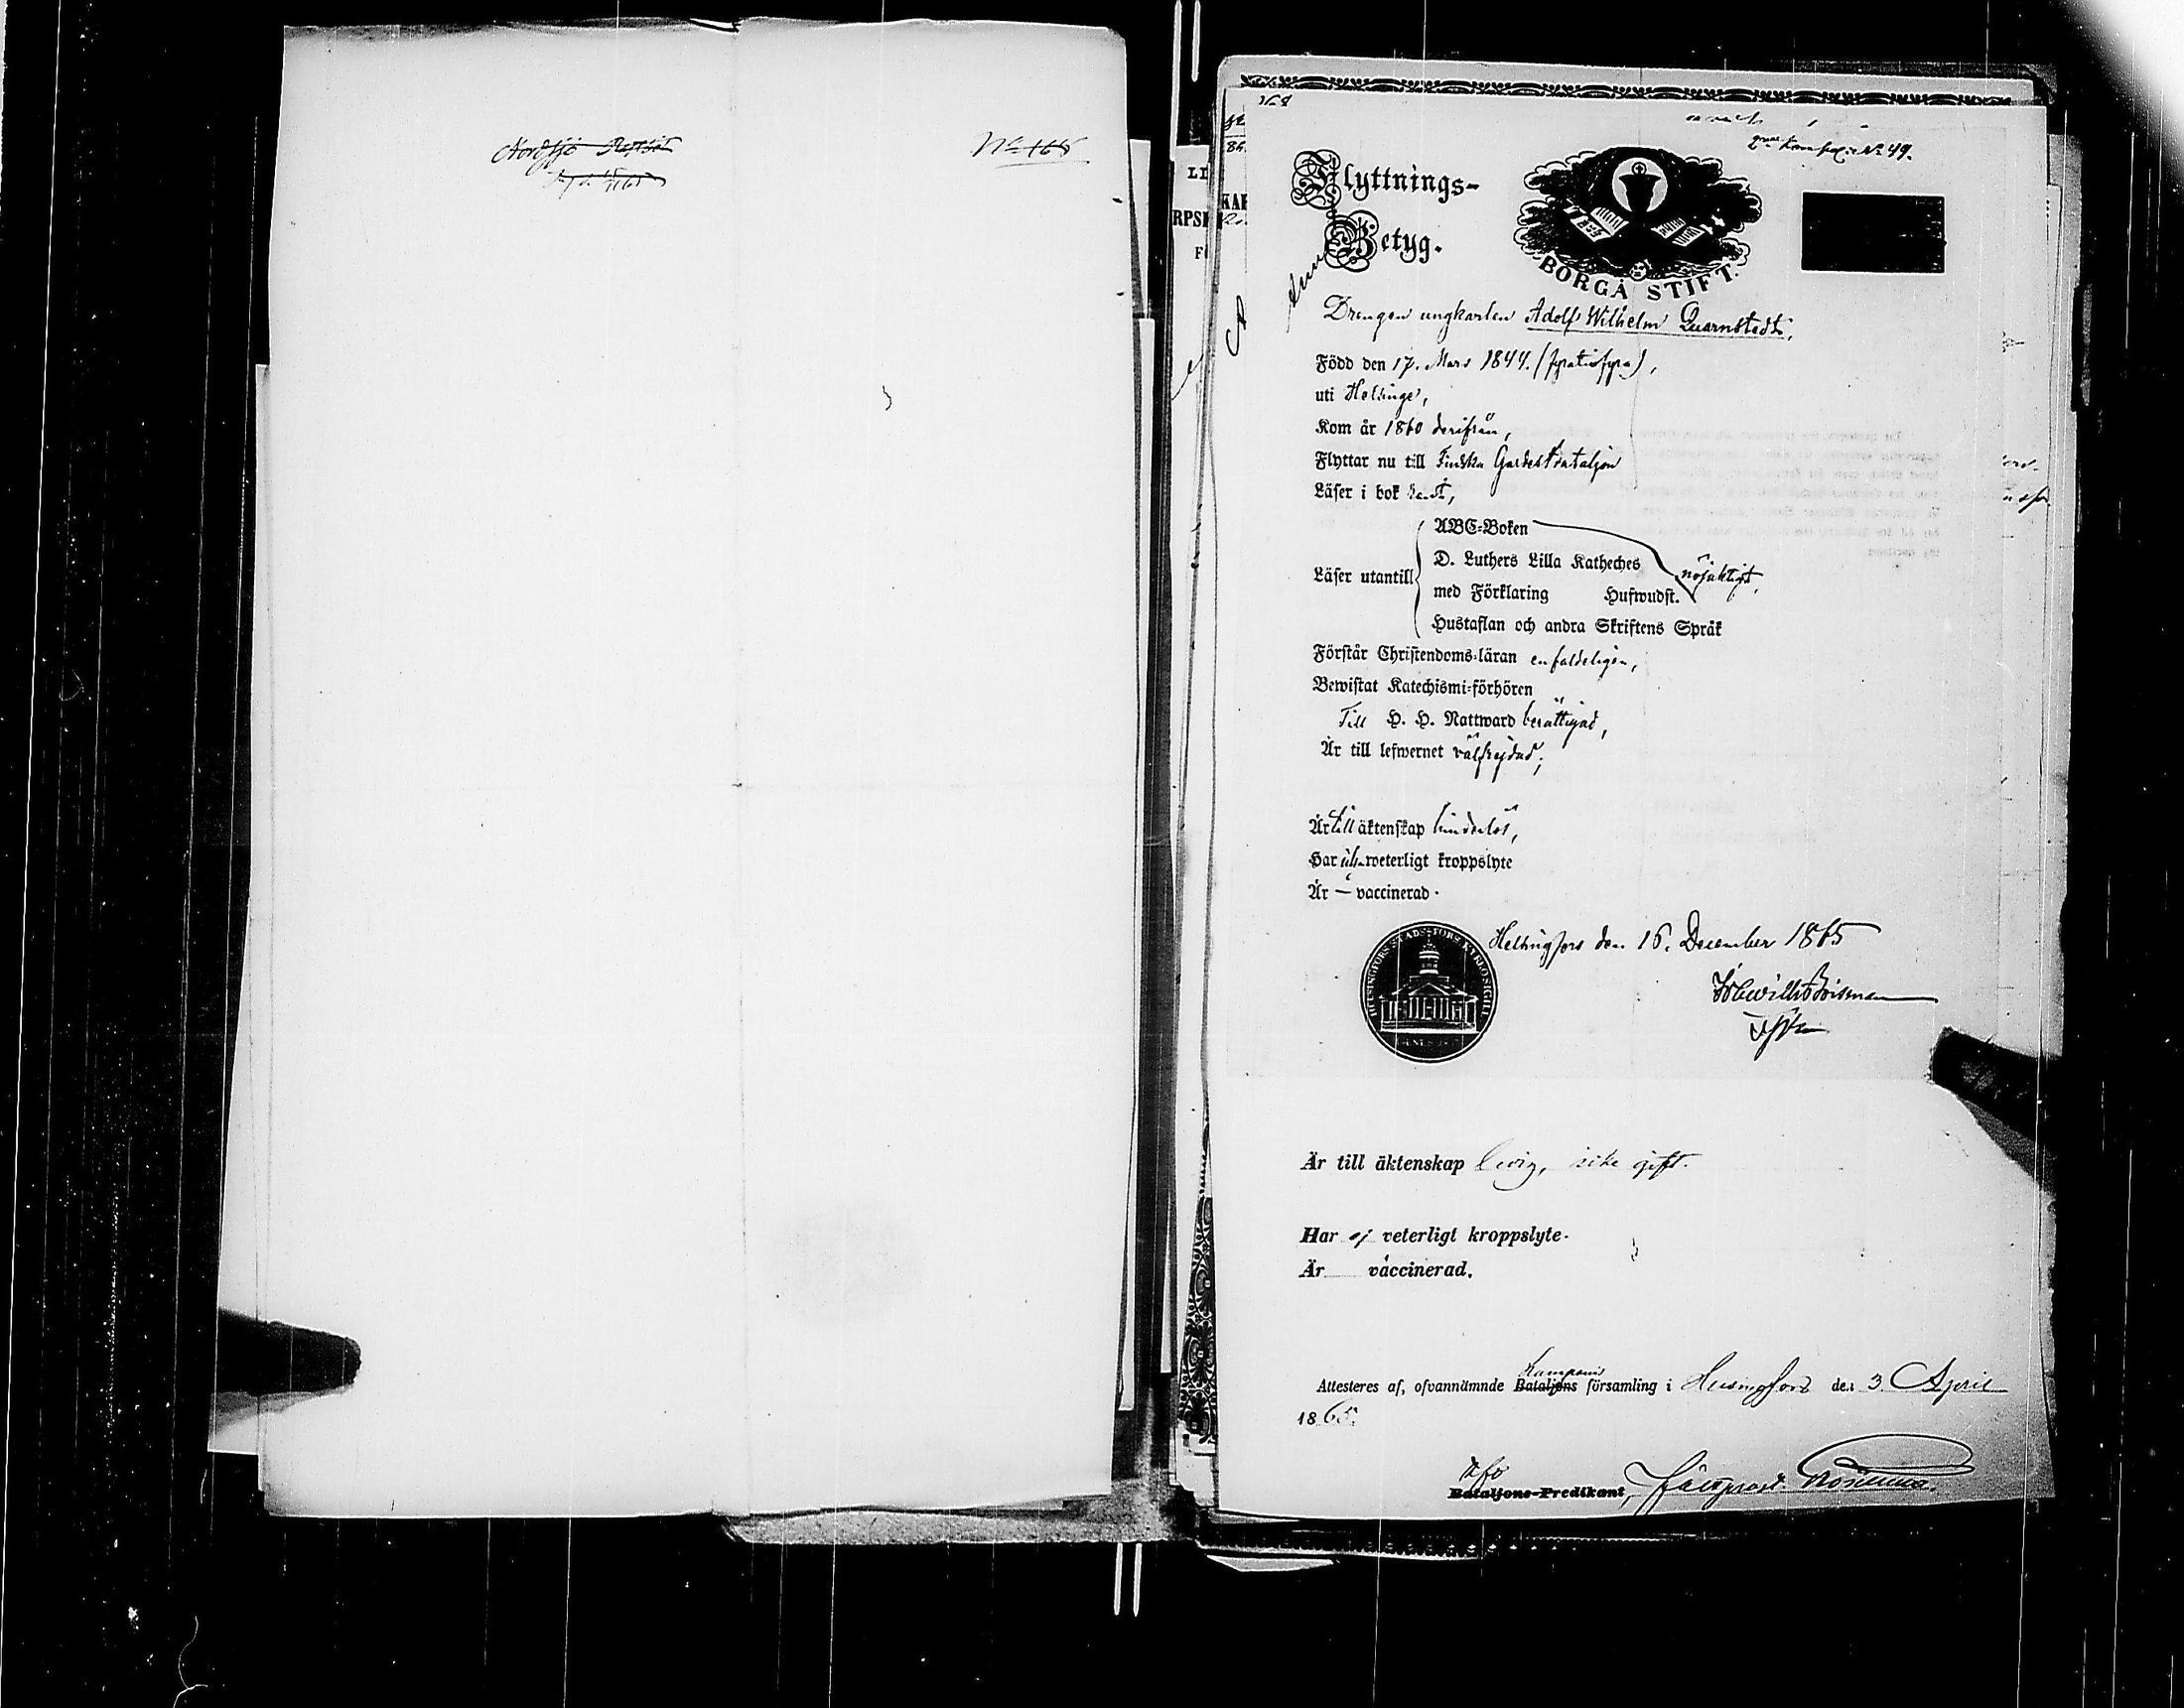 Nordsjö
No 168
168
2dra Komp. No 49.
Flyttnings-
Betyg.
BORGÅ STIFT.
Drengen ungkarlen Adolf Wilhelm Quarnstedt,
Född den 17. Mars 1844. (fyratiofyra),
uti Helsinge,
Kom år 1860 derifrån,
Flyttar nu till Finska Gardesbataljon
Läser i bok
ABC-Boken
D. Luthers Lilla Katheches
Läser utantill
nöjaktigt,
med Förklaring Hufwudst.
Hustaflan och andra Skriftens Språk
Förstår Christendoms-läran enfaldeligen,
Bewistat Katechismi-förhören
Till H. H. Nattward berättigad,
Är till lefwernet välfrejdad;
Är till äktenskap hinderlös,
Har weterligt kroppslyte
Är — vaccinerad.
Helsingfors den 16. December 1865
Är till äktenskap ledig, icke gift.
Har ej veterligt kroppslyte.
Är vaccinerad.
Kompanis
Attesteres af, ofvannämnde Bataljons församling i Helsingfors den 3 April
1865.
Bataljons-Predikant,